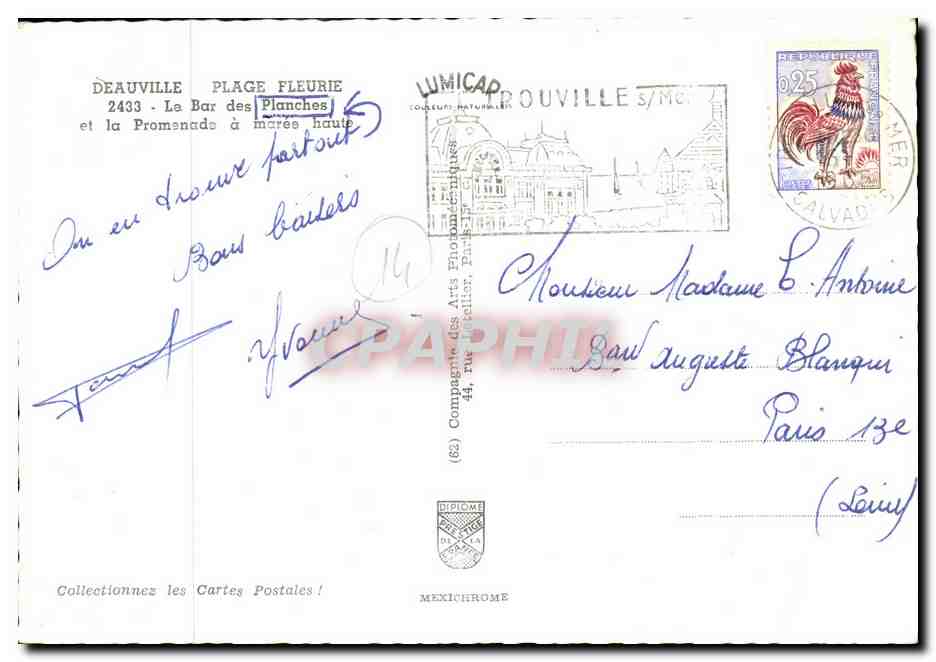 DEAUVILLE PLAGE FLEURIE
2433 - Le Bar des Planches
et la Promenade à marée haute
On en trouve partout
Bons baisers
Yvonne
14
LUMICAP
COULEURS NATURELLES
TROUVILLE S/Mer
REPUBLIQUE FRANÇAISE
0,25
S MER
CALVADOS
(62) Compagnie des Arts Photomécaniques
44, rue Letellier, Paris-15e
CPAPHIL
Monsieur Madame C. Antoine
Bard Auguste Blanqui
Paris 13e
(Seine)
DIPLOME
PRESTIGE
DE LA
FRANCE
MEXICHROME
Collectionnez les Cartes Postales !